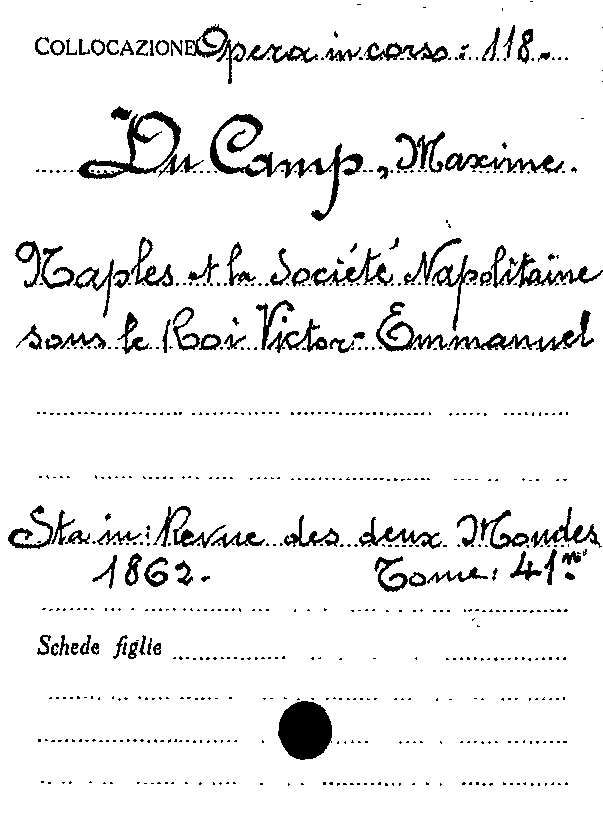 COLLOCAZIONE Opera in corso: 118.
Du Camp, Maxime.
Naples et la Société Napolitaine
sous le Roi Victor-Emmanuel
Sta in: Revue des deux Mondes
1862. Tome: 41.me
Schede figlie